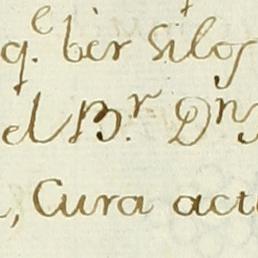 q.e ber Silos
el B.r Dn
, Cura act